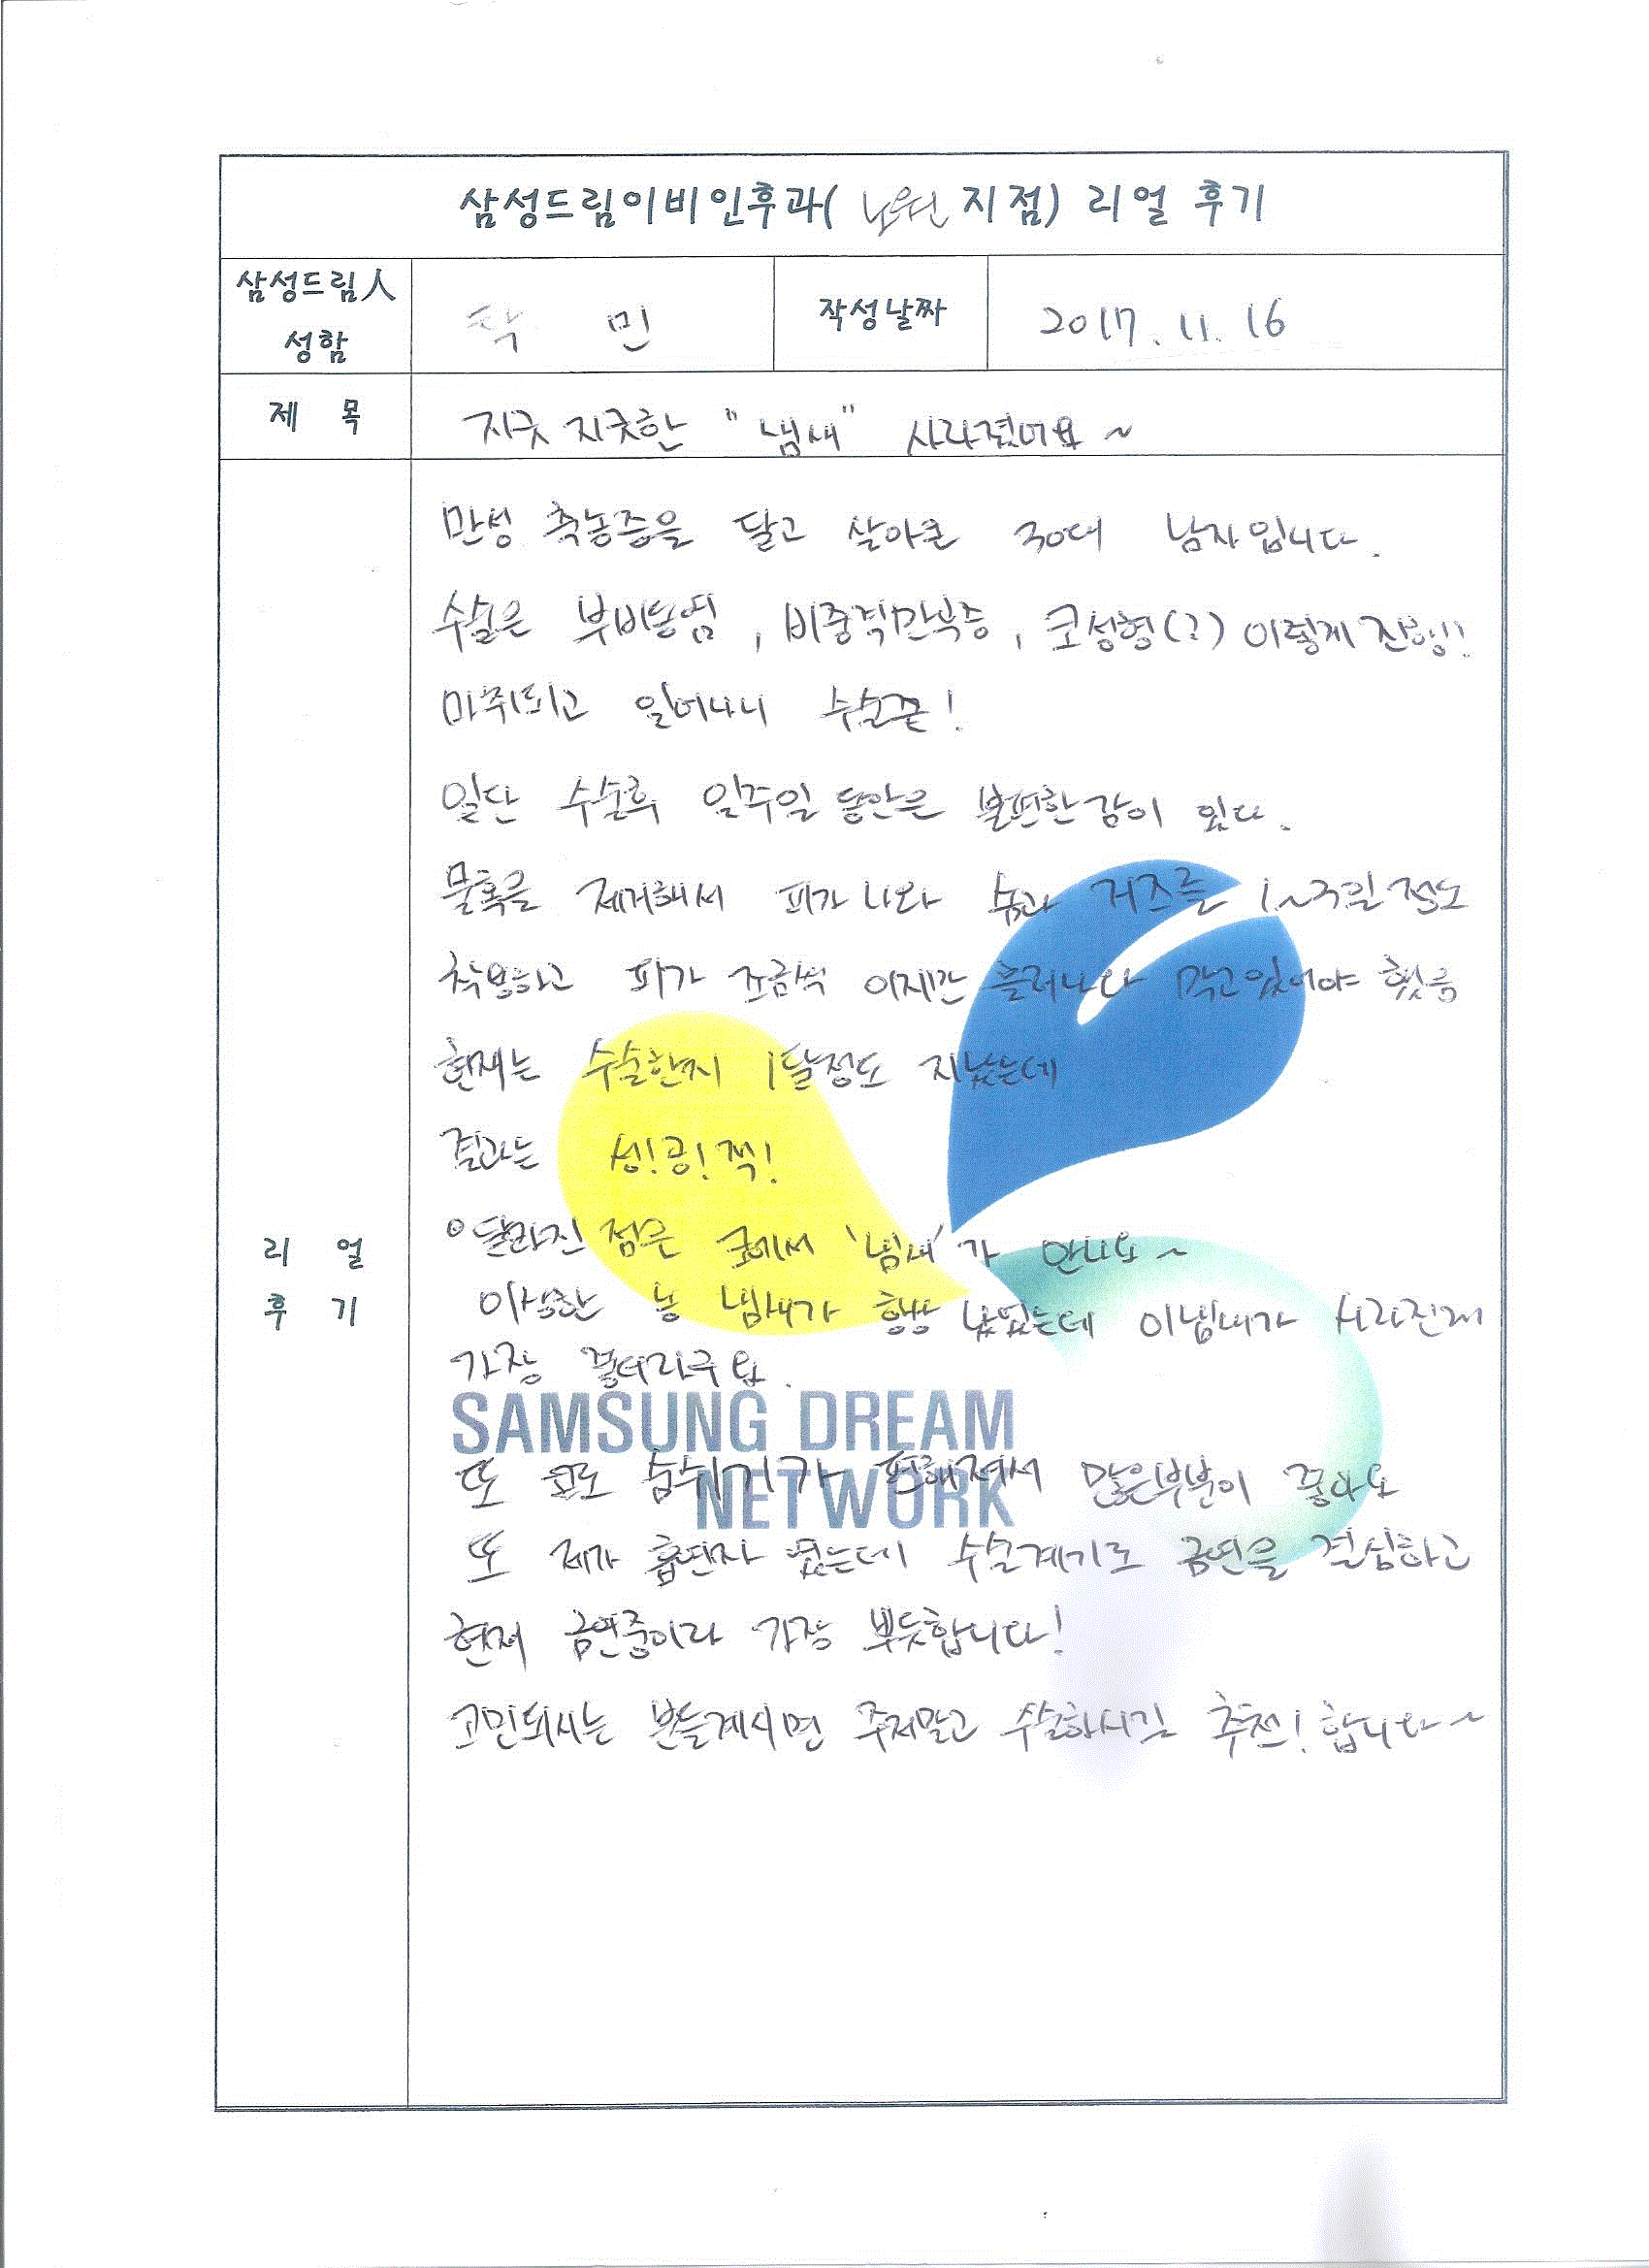 삼성드림이비인후과( 노원 지점) 리얼 후기
삼성드림人
성함
민
작성날짜
2017. 11. 16
제 목
지긋지긋한 "냄새" 사라졌너요 ~
만성 축농증을 달고 살아온 30대 남자입니다.
수술은 부비동염, 비중격만곡증, 코성형(?) 이렇게 진행!!
마취되고 일어나니 수술끝!
일단 수술후 일주일 동안은 불편한감이 있다.
물혹을 제거해서 피가 나와 솜과 거즈를 1~2일 정도
착용하고 피가 조금씩 흘러나와 막고있어야 했음
현재는 수술한지 1달정도 지났는데
결과는 성!공!적!
리 얼
후 기
달라진 점은 코에서 '냄새'가 안나요~
이상한 농 냄새가 항상 났었는데 이냄새가 사라진게
가장 좋더라구요.
SAMSUNG DREAM
NETWORK
또 코로 숨쉬기가 편해져서 많은부분이 좋아요
또 제가 흡연자 였는데 수술계기로 금연을 결심하고
현재 금연중이라 가장 뿌듯합니다!
고민되시는 분들계시면 주저말고 수술하시길 추천! 합니다~